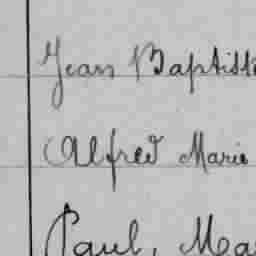 Jean Baptist
Alfred Marie
Paul, Ma